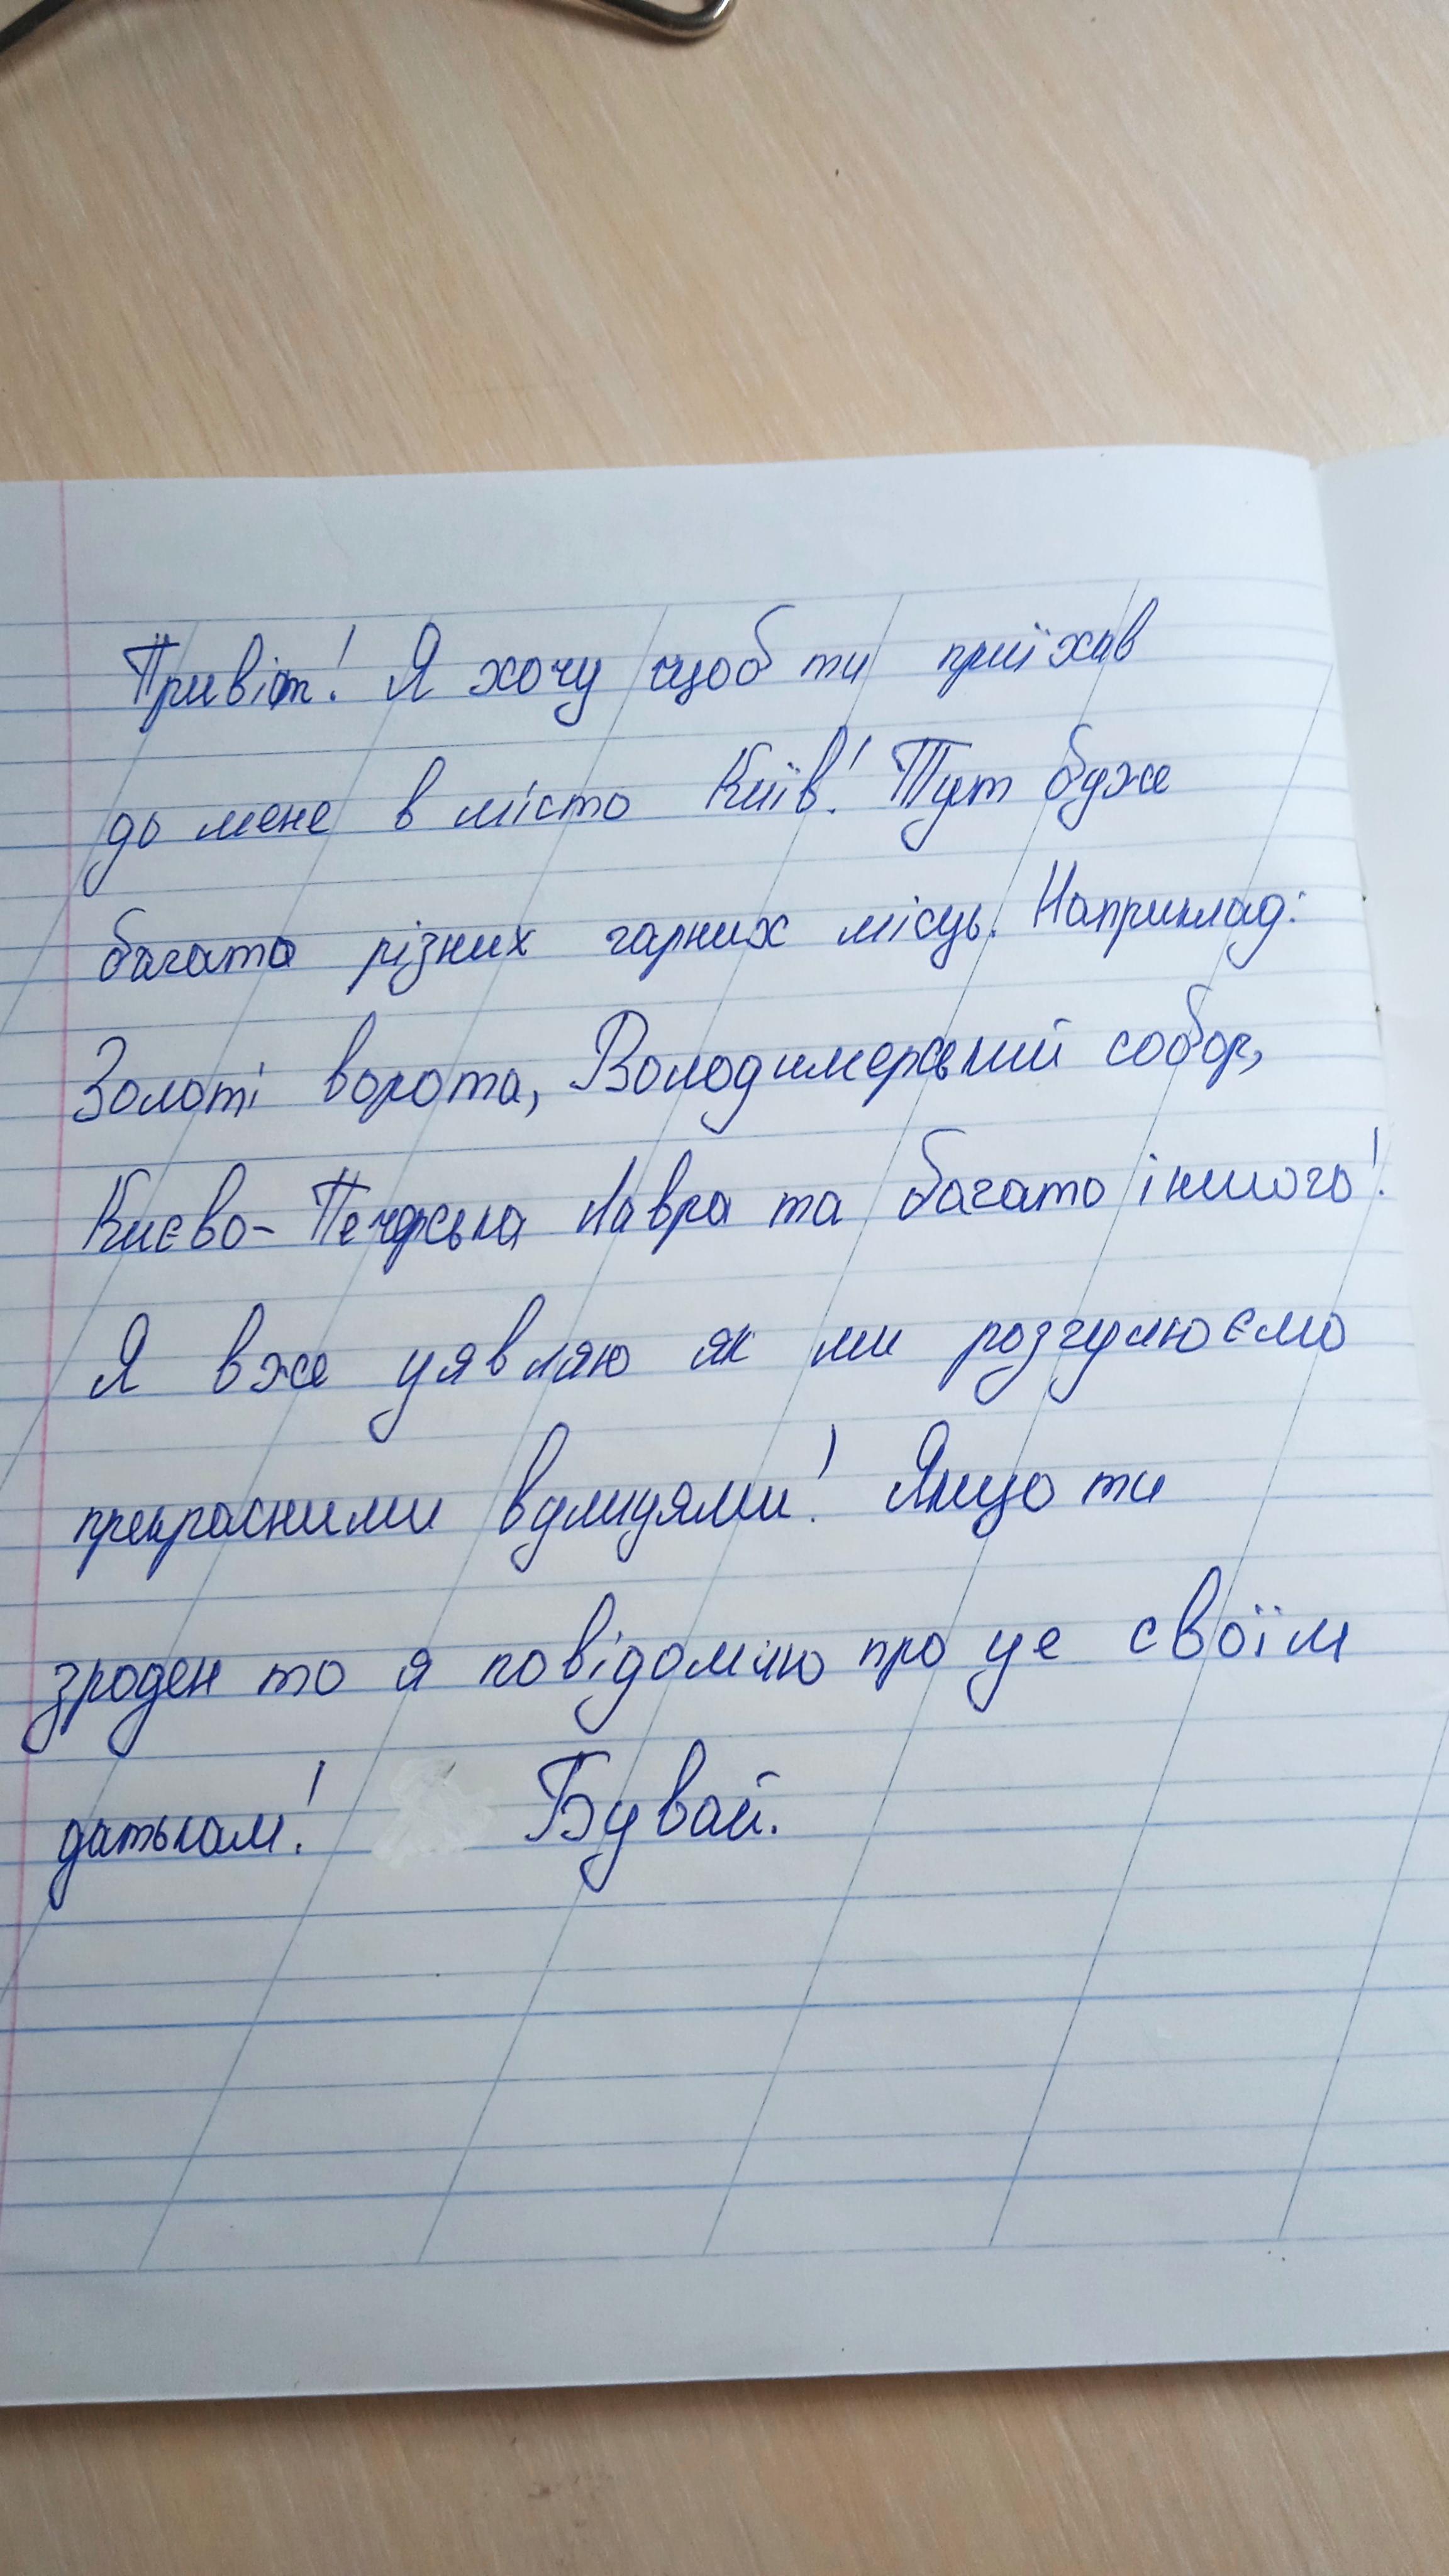 Привіт! Я хочу щоб ти приїхав
до мене в місто Київ! Тут дуже
багато різних гарних місць. Наприклад:
Золоті ворота, Володимерський собор,
Києво-Печерська Лавра та багато іншого!
Я вже уявляю як ми розгулюємо
прекрасними вулицями! Якщо ти
зроден то я повідомлю про це своїм
датькам! Бувай.